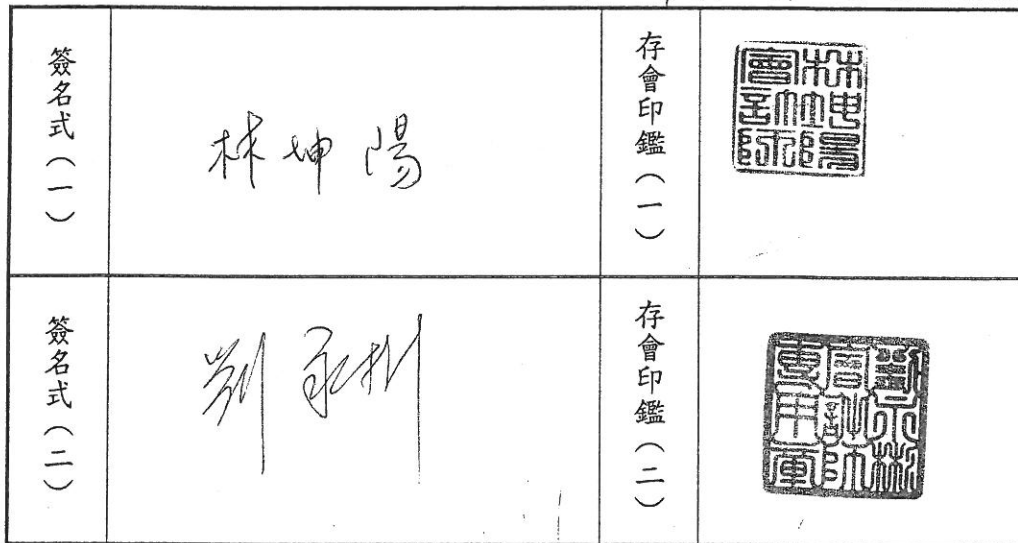 簽名式(一)
林坤陽
存會印鑑(一)
林坤陽
會計師
簽名式(二)
存會印鑑(二)
會計師
專用章